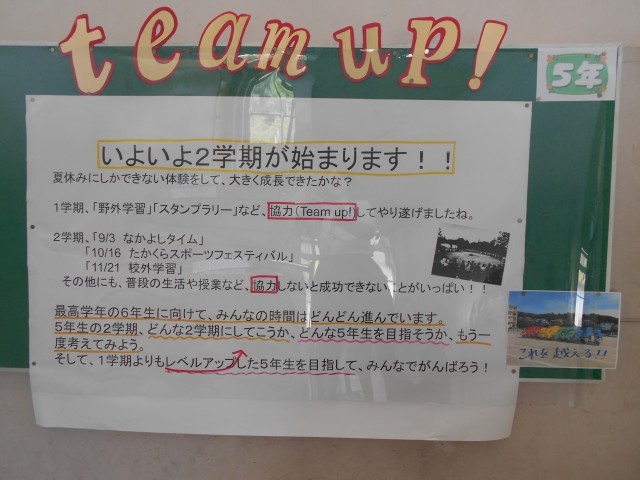 team up!
5年
いよいよ2学期が始まります！！
夏休みにしかできない体験をして、大きく成長できたかな？
1学期、「野外学習」「スタンプラリー」など、協力（Team up!）してやり遂げましたね。
2学期、「9/3 なかよしタイム」
「10/16 たかくらスポーツフェスティバル」
「11/21 校外学習」
その他にも、普段の生活や授業など、協力しないと成功できないことがいっぱい！！
最高学年の6年生に向けて、みんなの時間はどんどん進んでいます。
5年生の2学期、どんな2学期にしてこうか、どんな5年生を目指そうか、もう一
度考えてみよう。
そして、1学期よりもレベルアップした5年生を目指して、みんなでがんばろう！
これを越える!!